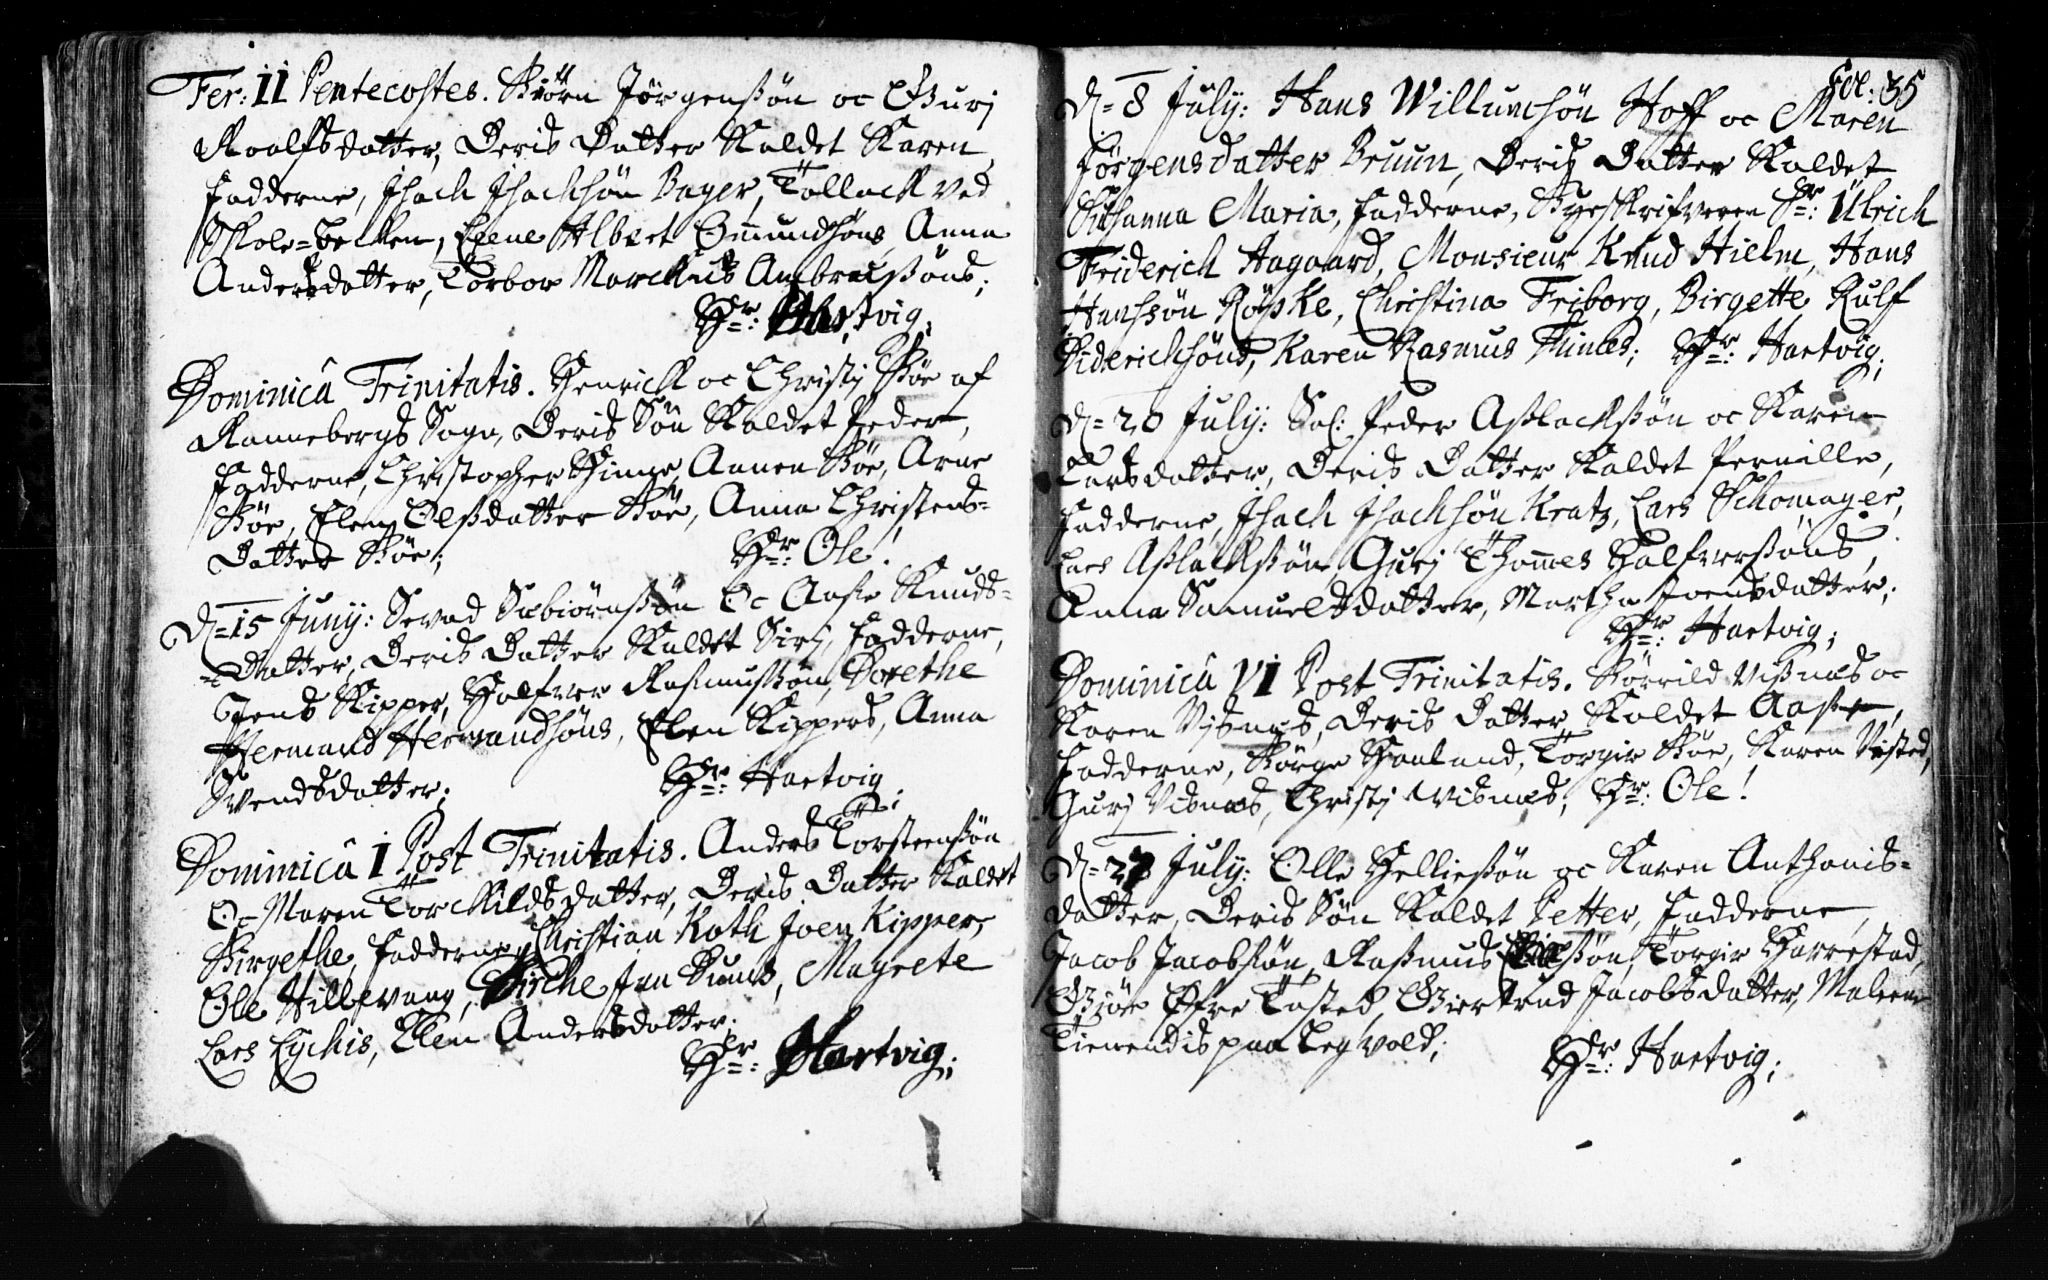 Fer: II Pentecostes. Biörn Jörgensßön oc Guri
Roalfsdatter, Deris Datter Kaldet Karen,
Fadderne, Jsach Jsachsön Bager, Tollack ved
Skole-becken, Elene Albret Omundsöns, Anna
Andersdatter, Torbor Marckus Ambrosißöns;
Hr: Hartvig;
Dominicâ Trinitatis. Henrick oc Christj Böe af
Rannebergs Sogn, Deris Sön Kaldet Peder,
Fadderne, Christopher Hinne, Aanen Böe, Arne
Böe, Elen Olßdatter Böe, Anna Christens-
Datter Böe; Hr: Ole!
D. 15 Junij: Sevad Sæbiörnßön Oc Aase Knuds-
Datter, Deris Datter Kaldet Sirj, Fadderne,
Jens Kipper, Halfver Rasmusßön, Dorethe
Hermand Hermandsöns, Elen Kippers, Anna
Svendsdatter; Hr: Hartvig;
Dominicâ I Post Trinitatis. Anders Torsteenßön
Oc Maren Torckildsdatter, Deris Datter Kaldet
Birgethe, Fadderne, Christian Roth, Joen Kipper,
Ole Hillevaag, Birthe Jan Buns, Magrete
Lars Lychis, Elen Andersdatter;
Hr: Hartvig;
Fol: 35
D. 8 July: Hans Willumsön Hoff oc Maren
Jörgensdatter Bruun, Deris Datter Kaldet
Susanna Maria, Fadderne, Byeskrifveren Sr: Ulrich
Friderich Aagaard, Monsieur Knud Hielm, Hans
Hansßön Röpke, Christina Friborg, Birgette Rulf
Diderichsöns, Karen Rasmus Times; Hr: Hartvig;
D. 20 July: Sal: Peder Aßlackßön oc Karen
Larsdatter, Deris Datter Kaldet Pernille,
Fadderne, Jsach Jsachsön Kratz, Lars Schomager,
Lars Aßlackßön, Gurj Thommes Halfversöns,
Anna Samuelsdatter, Martha Joensdatter;
Hr: Hartvig;
Dominicâ VI Post Trinitatis. Torrild Vißnæs oc
Karen Visnæs, Deris Datter Kaldet Aase,
Fadderne, Börge Haaland, Torgir Böe, Karen Visted,
Gurj Visnæs, Christj Visnæs; Hr: Ole!
D. 27 July: Olle Helließön oc Karen Anthonis-
datter, Deris Sön Kaldet Petter, Fadderne,
Jacob Jacobsön, Rasmus Torgir Harrestad,
Giöe Öfre Tasted, Giertrud Jacobsdatter, Maleene
Tienendis paa Legvold;
Hr: Hartvig;